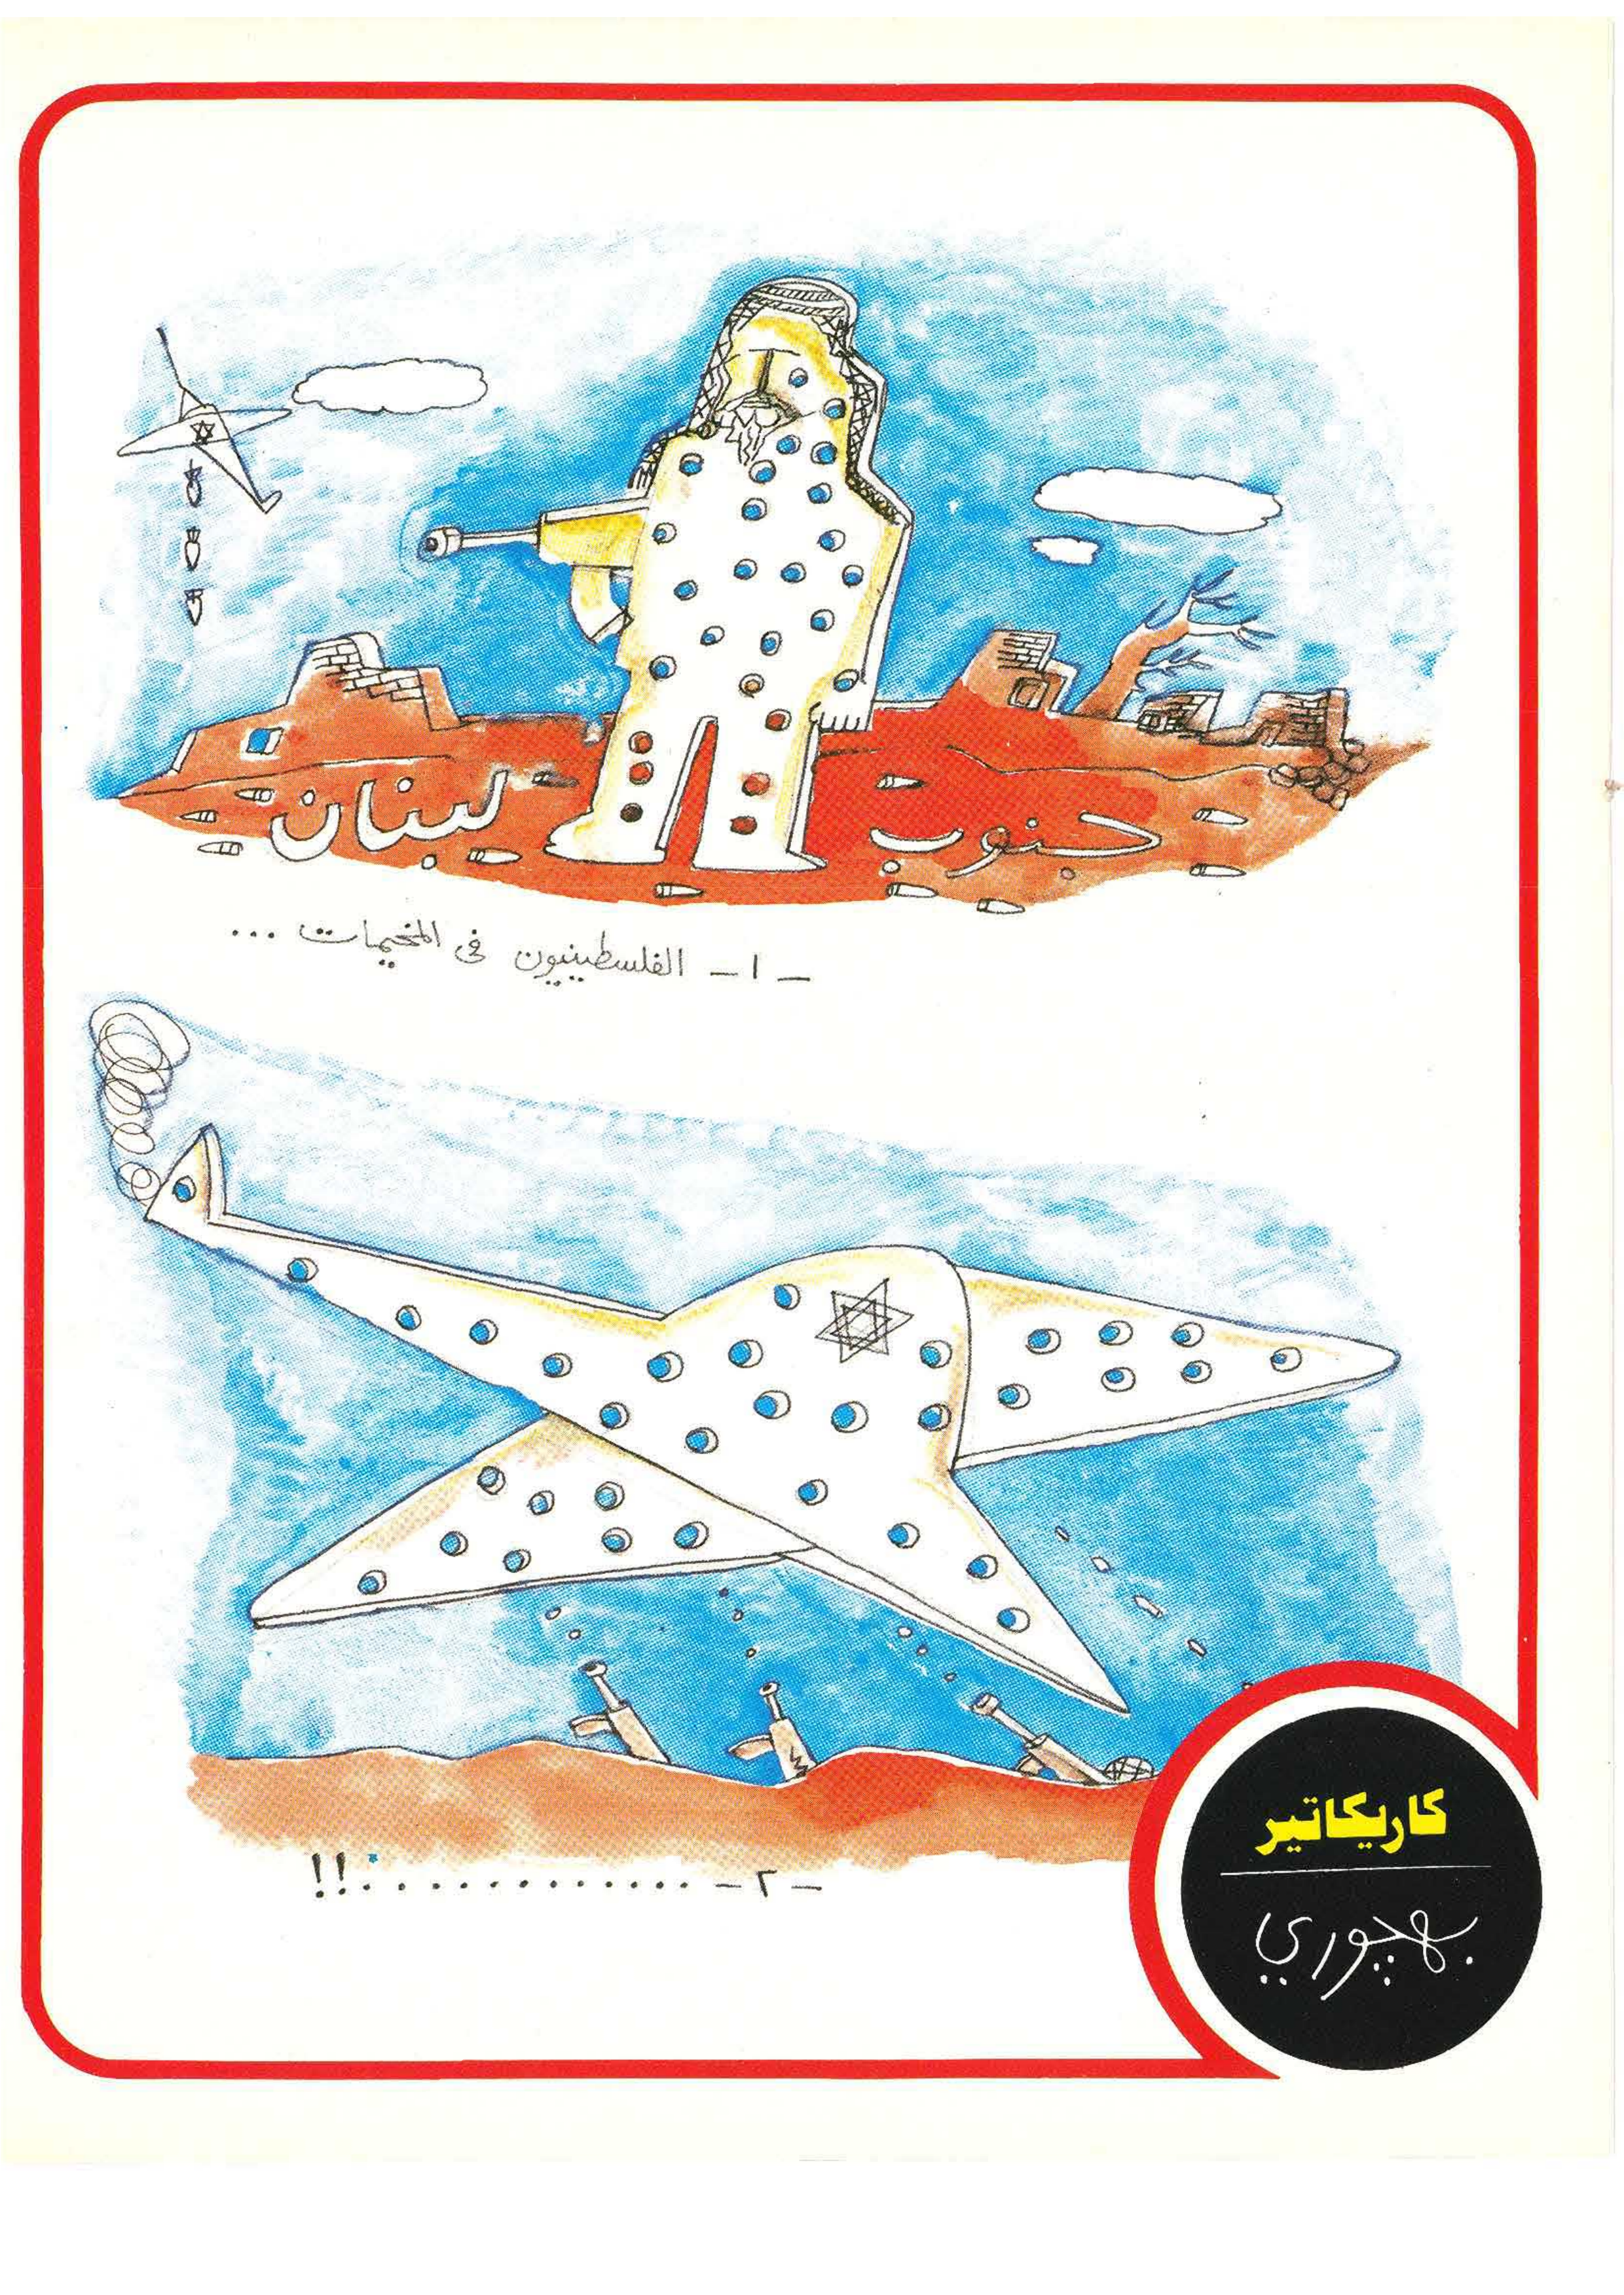 جنوب لبنان
- ١ - الفلسطينيون فى المخيمات ...
- ٢ - ..............!!
كاريكاتير
بهجوري